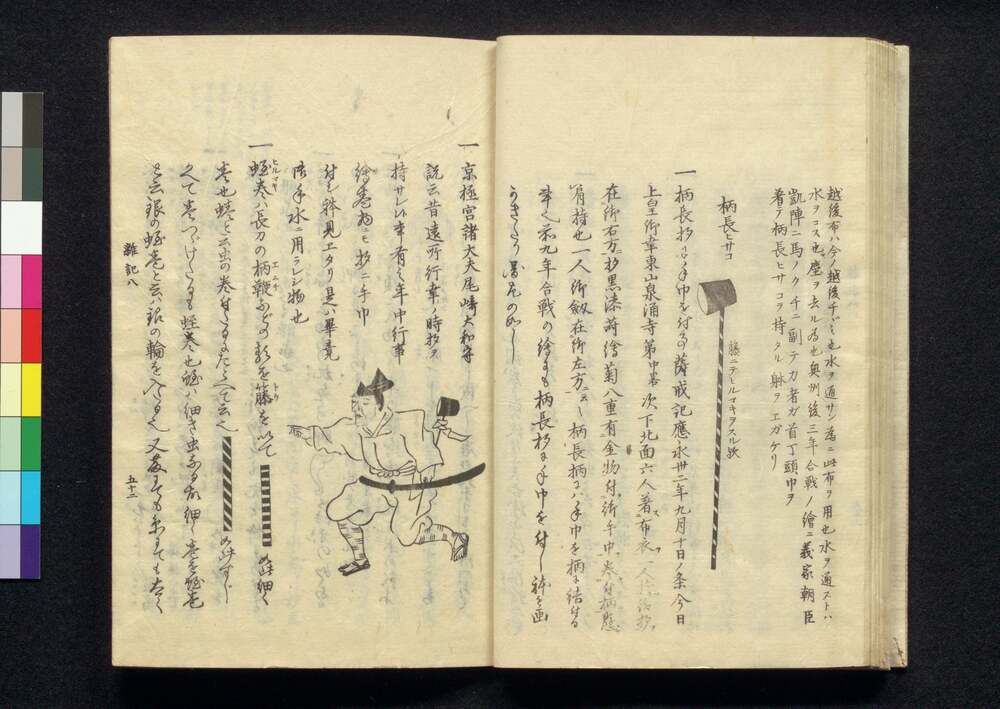 越後布ハ今ノ越後チヾミ也水ヲ通サン為ニ此布ヲ用也水ヲ通ストハ
水ヲコス也塵ヲ去ル為也奥州後三年合戦ノ繪ニ義家朝臣
凱陣ニ馬ノクチニ副テカ者ガ首丁頭巾ヲ
着テ柄長ヒサコヲ持タル躰ヲエガケリ
柄長ヒサコ
籐ニテヒルマキヲスル歟
一柄長杓に手巾を付る事薩戒記應永卅二年九月十日ノ条今日
上皇御幸東山泉涌寺第中畧次下北面六人著布衣
在御右方杓黒漆蒔繪菊八重有金物付御手巾
有持也一人御劔在御左方柄長柄にハ手巾を柄に結付る
年之前九年合戦の繪にも柄長杓に手巾を付し躰を画
かきたり圖左の如し
一京極宮諸大夫尾崎大和守
説云昔遠所行幸ノ時杓ヲ
持サレシ事有之年中行事
繪巻物ニモ杓ニ手巾
付シ躰見エタリ是ハ畢竟
御手水ニ用ラレシ物也
一蛭巻ハ長刀の柄鞭などの類を籐を以て
ヒルマキ
エ
ムチ
トウ
如此細く
巻也蛭と云虫の巻付たるにたとへて云之
如此すじ
之て巻つゞけたるも蛭巻也蛭ハ細き虫なる故細く巻を蛭巻
と云銀の蛭巻と云ハ銀の輪を入るゝ之又藤にても糸にても太く
雜記八
五十二